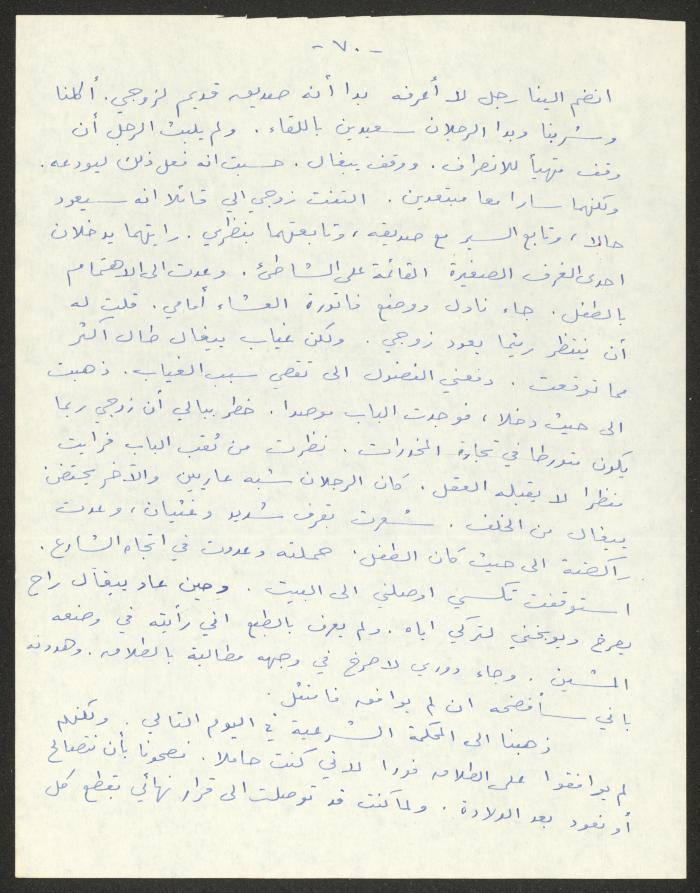 - ٧٠ -
انضم الينا رجل لا أعرفه بدا أنه صديق قديم لزوجي. أكلنا
وشربنا وبدا الرجلان سعيدين باللقاء. ولم يلبث الرجل أن
وقف متهيأ للانصراف. ووقف بيغال. حسبت انه فعل ذلك ليودعه.
ولكنهما سارا معا مبتعدين. التفت زوجي الي قائلا انه سيعود
حالا، وتابع السير مع صديقه، وتابعتهما بنظري. رايتهما يدخلان
احدى الغرف الصغيرة القائمة على الشاطئ. وعدت الى الاهتمام
بالطفل. جاء نادل ووضع فاتورة العشاء أمامي. قلت له
أن ينتظر ريثما يعود زوجي. ولكن غياب بيغال طال أكثر
مما توقعت. دفعني الفضول الى تقصي سبب الغياب. ذهبت
الى حيث دخلا، فوجدت الباب موصدا. خطر ببالي أن زوجي ربما
يكون متورطا في تجارة المخدرات. نظرت من ثقب الباب فرايت
منظرا لا يقبله العقل. كان الرجلان شبه عاريين والآخر يحتضن
بيغال من الخلف. شعرت بقرف شديد وغثيان، وعدت
راكضة الى حيث كان الطفل. حملته وعدوت في اتجاه الشارع.
استوقفت تكسي اوصلني الى البيت. وحين عاد بيغال راح
يصرخ ويوبخني لتركي اياه. ولم يعرف بالطبع اني رأيته في وضعه
المشين. وجاء دوري لاصرخ في وجهه مطالبة بالطلاق. وهددته
باني سأفضحه ان لم يوافق فامتثل.
ذهبنا الى المحكمة الشرعية في اليوم التالي. ولكنهم
لم يوافقوا على الطلاق فورا لاني كنت حاملا. نصحونا بأن نتصالح
أو نعود بعد الولادة. ولما كنت قد توصلت الى قرار نهائي بقطع كل